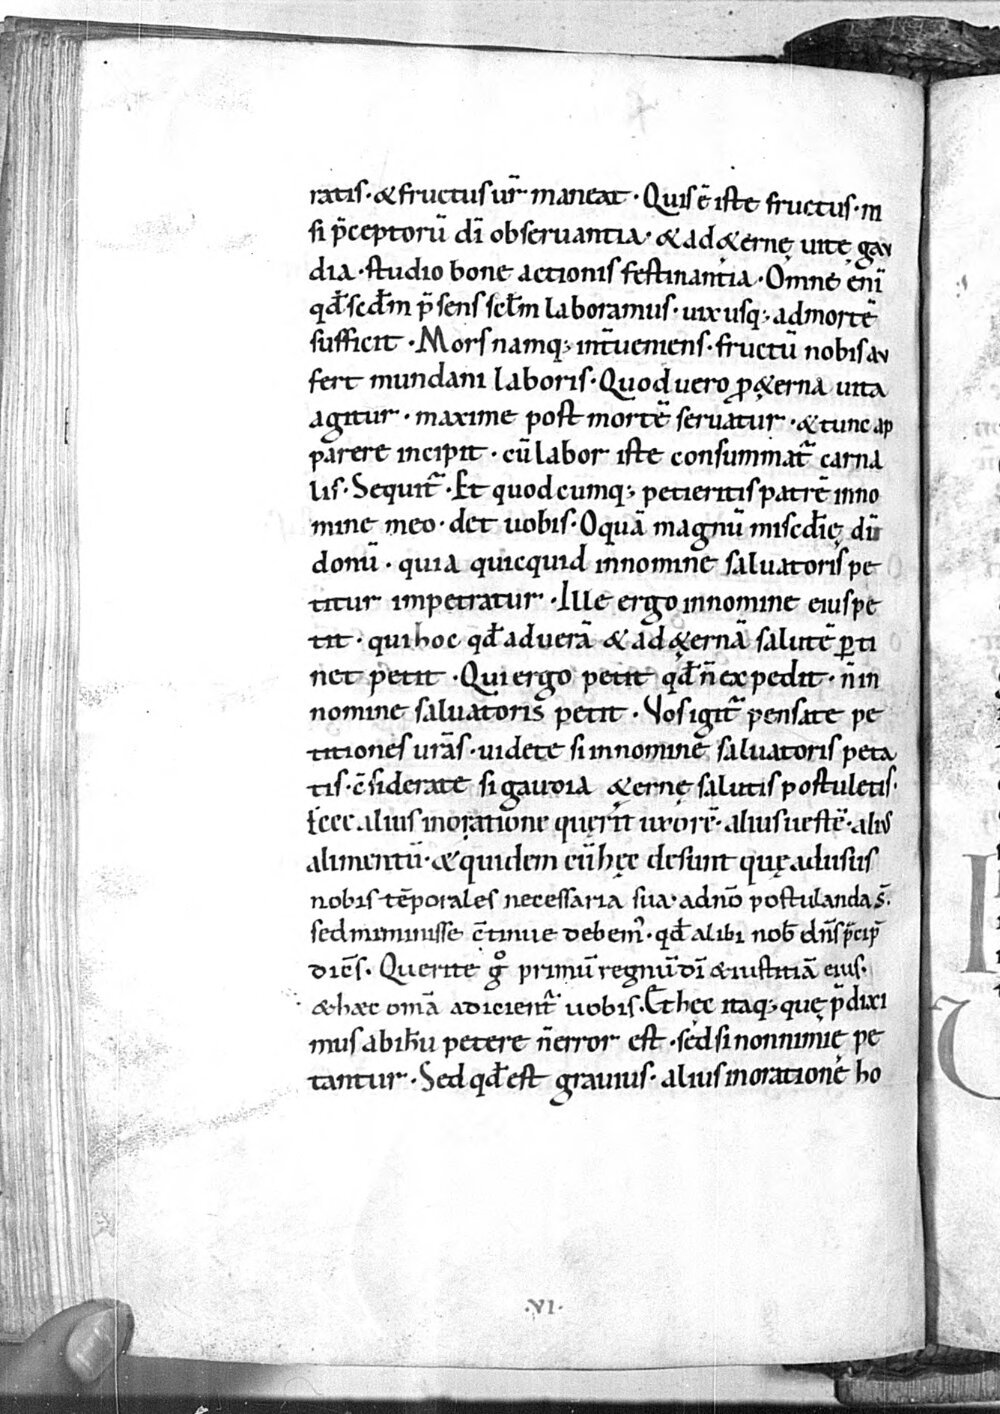 ratis · & fructus ur̄ maneat · Quis ē iste fructus · ni
si p̄ceptorū dī obseruantia · & ad &ernę uitę gau
dia · studio bone actionis festinantia · Omne enī
qđ scđm p̄sens sclm laboramus · uix usq; ad mortē
sufficit · Mors namq; int̄ueniens · fructū nobis au
fert mundani laboris · Quod uero ꝓ &erna uita
agitur · maxime post mortē seruatur · & tunc ap
parere incipit · cū labor iste consummat̄ carna
lis · Sequit̄ · Et quodcumq; petieritis patrē in no
mine meo · det uobis · O quā magnū misc̄đię diī
donū · quia quicquid in nomine saluatoris pe
titur impetratur · Ille ergo in nomine eius pe
tit · qui hoc qđ ad uerā & ad &ernā salutē ꝑti
net petit · Qui ergo petit qđ n̄ expedit · n̄ in
nomine saluatoris petit · Vos igit̄ pensate pe
titiones urās · uidete si in nomine saluatoris peta
tis · c̄siderate si gaudia &ernę salutis postuletis ·
Ecce alius in oratione querit uxorē · alius uestē · alius
alimentū · & quidem cū hęc desunt quę ad usus
nobis tēporales necessaria sua · ad nō postulanda s̄ ·
sed miminisse c̄tinue debem̄ · qđ alibi nob̄ dn̄s p̄cip̄
diēs · Querite gͦ primū regnū dī & iustitiā eius ·
& hæc om̄a adicient̄ uobis · Et hęc itaq; quę p̄dixi
mus ab ihū petere n̄ error est · sed si non nimię pe
tantur · Sed qđ est grauius · alius in oratione ho
· VI ·